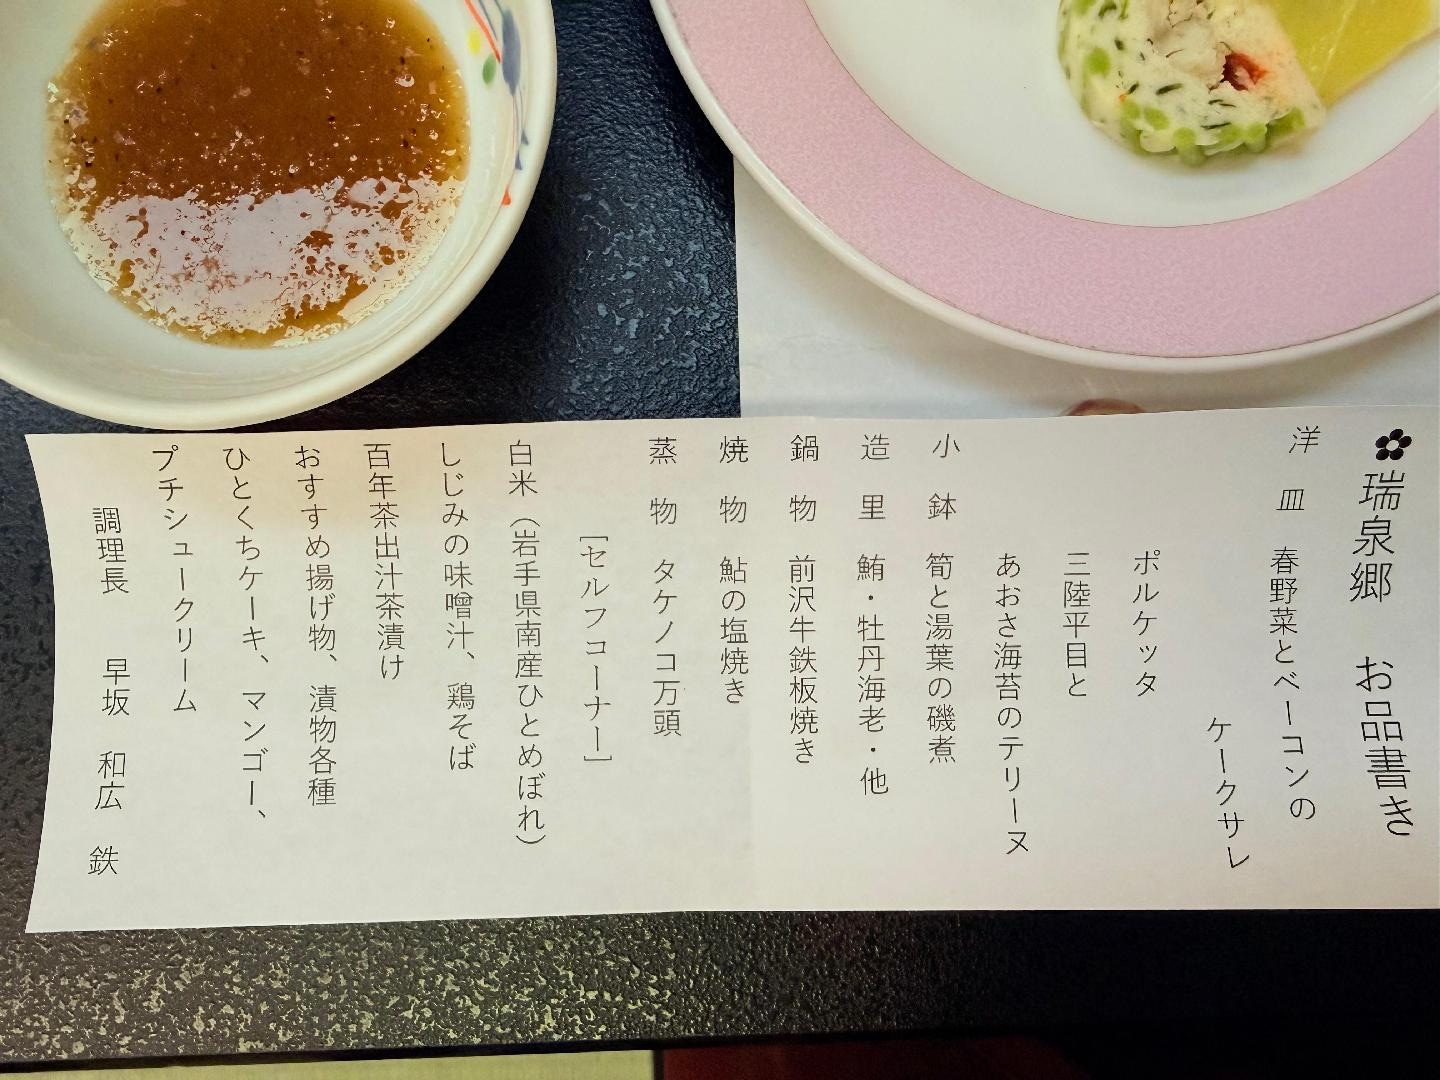 ✿瑞泉郷 お品書き
洋皿 春野菜とベーコンの
ケークサレ
ポルケッタ
三陸平目と
あおさ海苔のテリーヌ
小鉢 筍と湯葉の磯煮
造里 鮪・牡丹海老・他
鍋物 前沢牛鉄板焼き
焼物 鮎の塩焼き
蒸物 タケノコ万頭
[セルフコーナー]
白米(岩手県南産ひとめぼれ)
しじみの味噌汁、鶏そば
百年茶出汁茶漬け
おすすめ揚げ物、漬物各種
ひとくちケーキ、マンゴー、
プチシュークリーム
調理長 早坂 和広 鉄